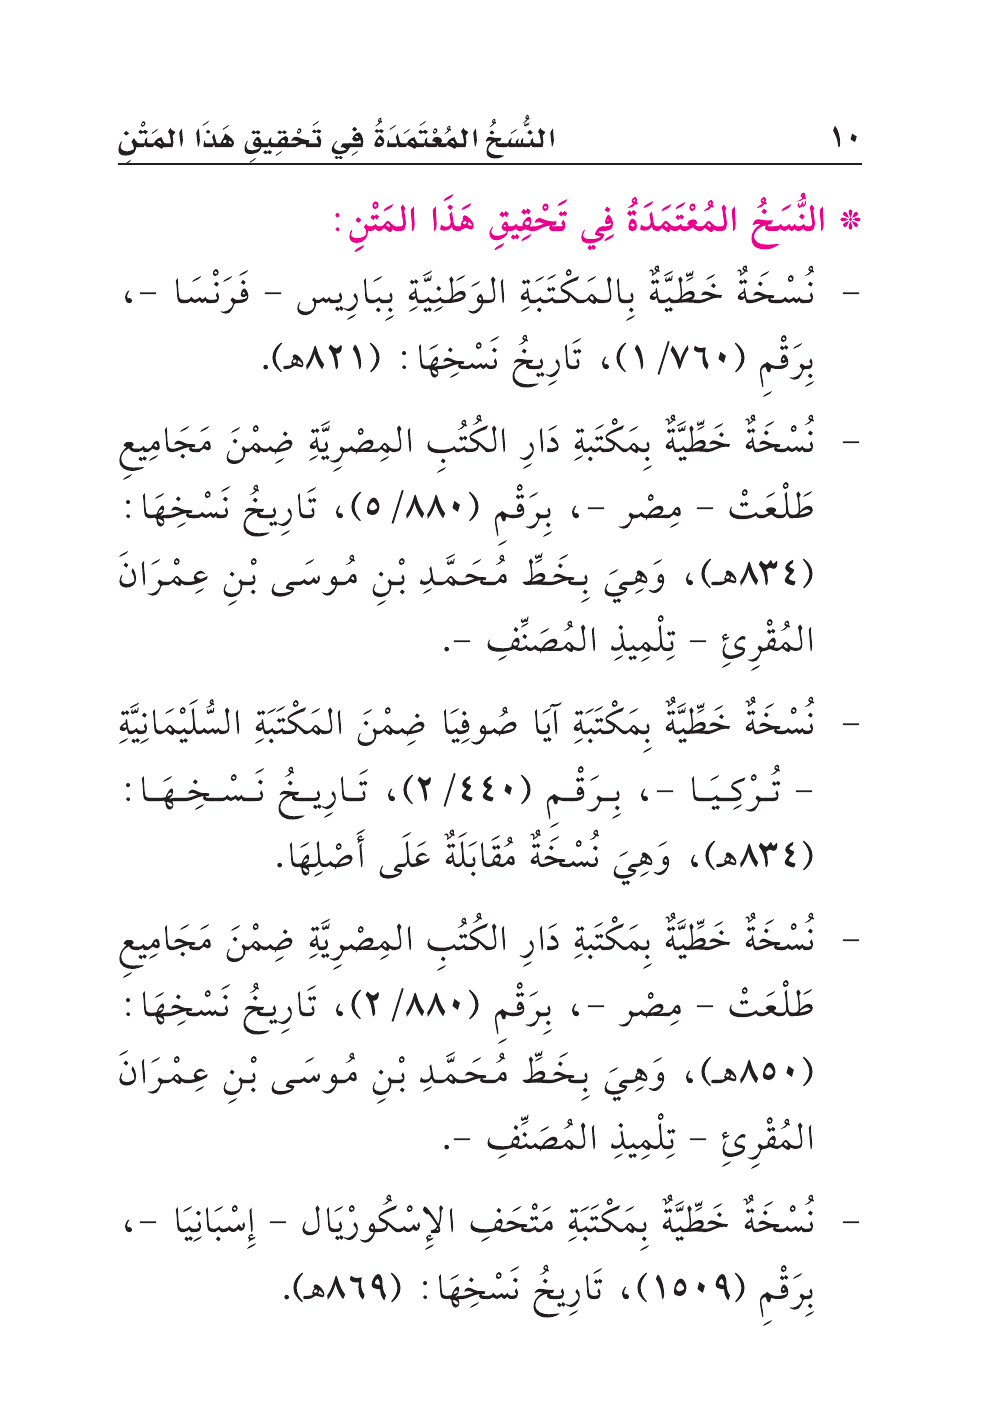 ١٠ النُّسَخُ المُعْتَمَدَةُ فِي تَحْقِيقِ هَذَا المَتْنِ
* النُّسَخُ المُعْتَمَدَةُ فِي تَحْقِيقِ هَذَا المَتْنِ:
- نُسْخَةٌ خَطِّيَّةٌ بِالمَكْتَبَةِ الوَطَنِيَّةِ بِبَارِيس - فَرَنْسَا -،
بِرَقْمِ (٧٦٠/ ١)، تَارِيخُ نَسْخِهَا: (٨٢١هـ).
- نُسْخَةٌ خَطِّيَّةٌ بِمَكْتَبةِ دَارِ الكُتُبِ المِصْرِيَّةِ ضِمْنَ مَجَامِيعِ
طَلْعَتْ - مِصْر -، بِرَقْمِ (٨٨٠/ ٥)، تَارِيخُ نَسْخِهَا:
(٨٣٤هـ)، وَهِيَ بِخَطِّ مُحَمَّدِ بْنِ مُوسَى بْنِ عِمْرَانَ
المُقْرِئِ - تِلْمِيذِ المُصَنِّفِ -.
- نُسْخَةٌ خَطِّيَّةٌ بِمَكْتَبَةِ آيَا صُوفِيَا ضِمْنَ المَكْتَبَةِ السُّلَيْمَانِيَّةِ
- تُرْكِيَا -، بِرَقْمِ (٤٤٠/ ٢)، تَارِيخُ نَسْخِهَا:
(٨٣٤هـ)، وَهِيَ نُسْخَةٌ مُقَابَلَةٌ عَلَى أَصْلِهَا.
- نُسْخَةٌ خَطِّيَّةٌ بِمَكْتَبةِ دَارِ الكُتُبِ المِصْرِيَّةِ ضِمْنَ مَجَامِيعِ
طَلْعَتْ - مِصْر -، بِرَقْمِ (٨٨٠/ ٢)، تَارِيخُ نَسْخِهَا:
(٨٥٠هـ)، وَهِيَ بِخَطِّ مُحَمَّدِ بْنِ مُوسَى بْنِ عِمْرَانَ
المُقْرِئِ - تِلْمِيذِ المُصَنِّفِ -.
- نُسْخَةٌ خَطِّيَّةٌ بِمَكْتَبَةِ مَتْحَفِ الإِسْكُورْيَال - إِسْبَانِيَا -،
بِرَقْمِ (١٥٠٩)، تَارِيخُ نَسْخِهَا: (٨٦٩هـ).